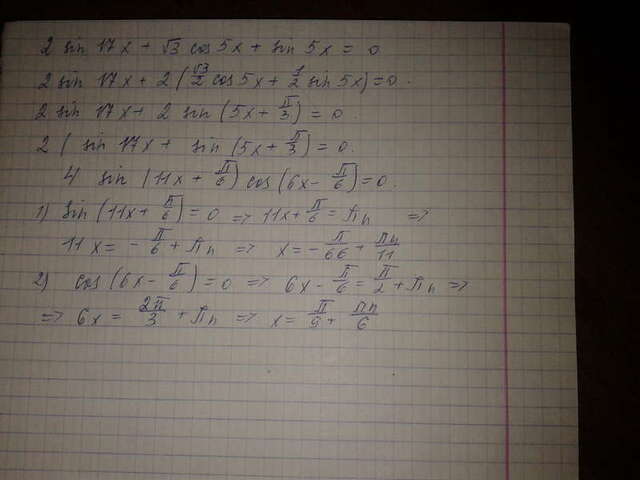 2 sin 17x + √3 cos 5x + sin 5x = 0
2 sin 17x + 2 (√3/2 cos 5x + 1/2 sin 5x) = 0.
2 sin 17x + 2 sin (5x + π/3) = 0.
2 ( sin 17x + sin (5x + π/3) = 0.
4 sin (11x + π/6) cos (6x - π/6) = 0.
1) sin (11x + π/6) = 0 => 11x + π/6 = πn =>
11x = - π/6 + πn => x = - π/66 + πn/11
2) cos (6x - π/6) = 0 => 6x - π/6 = π/2 + πn =>
=> 6x = 2π/3 + πn => x = π/9 + πn/6